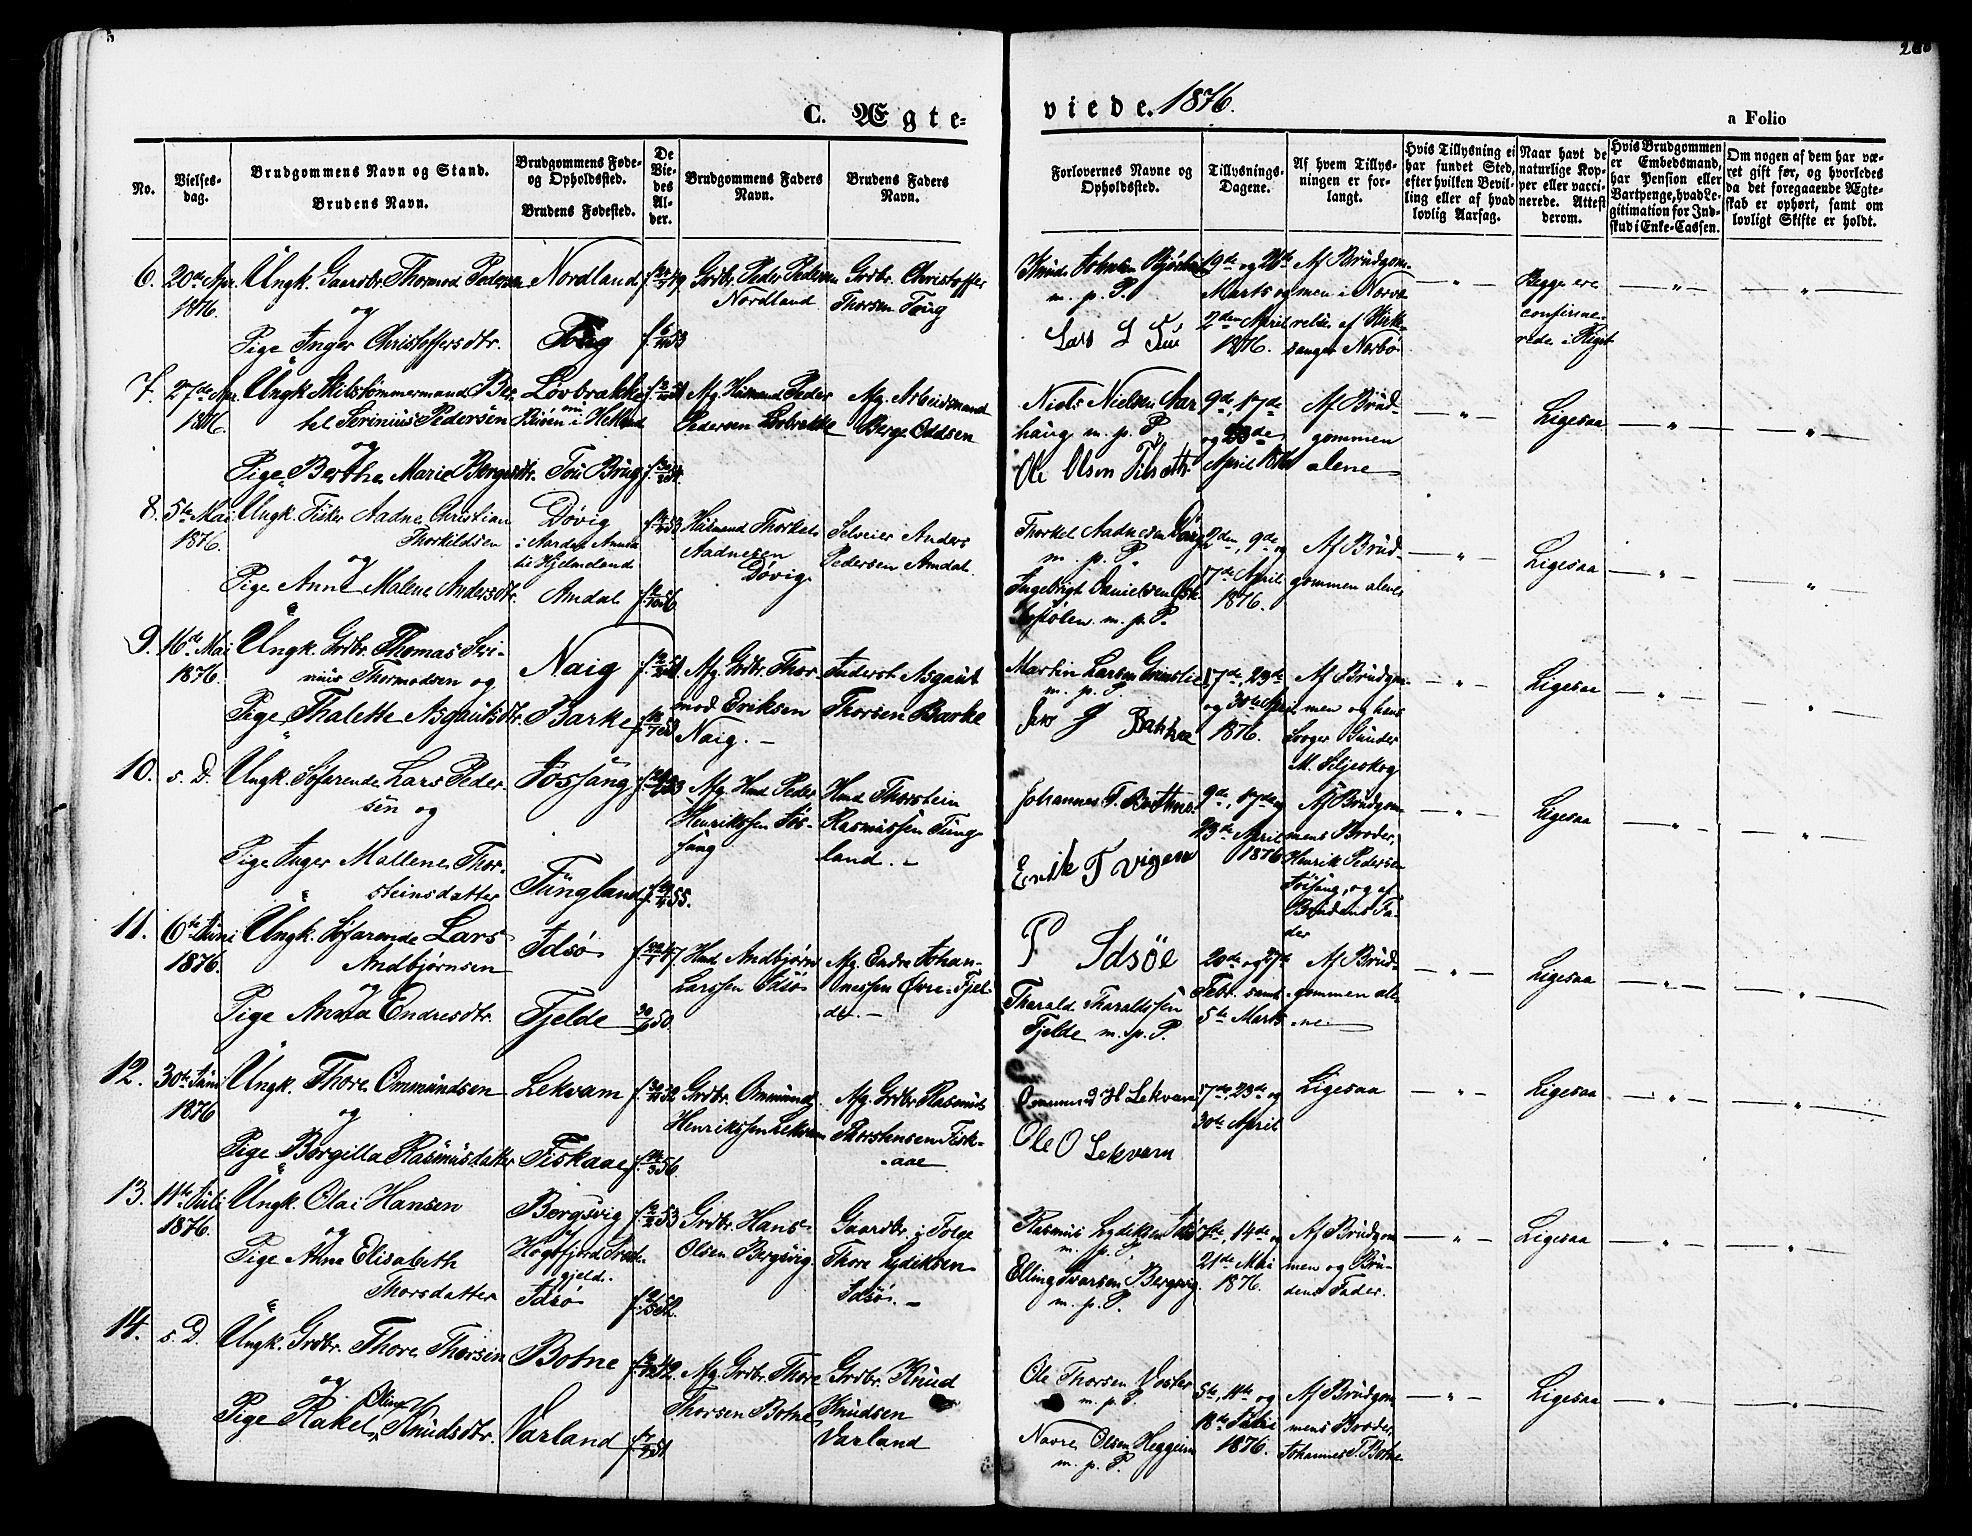 C. Ægteviede. 1876.
a Folio
No.
Vielsesdag.
Brudgommens Navn og Stand.
Brudens Navn.
BrudgommensFøde- og Opholdssted.
Brudens Fødested.
De Viedes Alder.
Brudgommens Faders Navn.
Brudens Faders Navn.
Forlovernes Navne og Opholdssted.
Tillysnings-Dagene.
Af hvem Tillysningen er forlangt.
Hvis Tillysning ei har fundet Sted, efter hvilken Bevilling eller af hvad lovlig Aarsag.
Naar havt de naturlige Kopper eller vaccinerede. Attest derom.
Hvis Brudgommen er Embedsmand, har Pension eller Vartpenge, hvad Legitimation for Indskud i Enke-Cassen.
Om nogen af dem har været gift før, og hvorledes da det foregaaende Ægteskab er ophørt, samt om lovligt Skifte er holdt.
6. 20de Apr. 1876.
Ungk. Gaardbr. Thormod Pedersen
og
Pige Inger Christoffersdtr.
Nordland
Toug
Grdbr. Peder Pedersen Nordland
Grdbr. Christoffer Thorsen Toug
m. p. P.
19de og 26de Marts og 2den April 1876.
Begge ere confirmerede i Regst
7. 27de Apr. 1876.
Ungk. Skibstømmermand Bertel Serinius Pedersen
og
Pige Berthe Marie Bergesdtr.
Løvbrække
Tou Brug
Afg. Husmand Peder Pedersen Løvbrække
Afg. Arbeidsmand Berge Oddsen
Niels Nielsen Aarhaug m. p. P.
9de, 17de og 23de April 1876
Af Brudgommen alene
Ligesaa
8. 5te Mai 1876.
Ungk. Fisker Aadne Christian Thorkildsen
og
Pige Anne Malene Andersdtr.
Døvig
Amdal
Husmand Thorkel Aadnesen Døvig
Selveier Anders Pedersen Amdal.
Thorkel Aadnesen
m. p. P.
Ingebrigt Danielsen
m. p. P.
2den, 9de og 17de April 1876.
Af Brudgommen alene
Ligesaa
9. 16de Mai 1876.
Ungk. Grdbr. Thomas Serinius Thormodsen og
Pige Thalette Asgautsdtr.
Naig
Barke
Afg. Grdbr. Thormod Eriksen Naig. -
Inderst Asgaut Thorsen Barke
Martin Larsen
m. p. P.
17de, 23de og 30te April 1876.
Af Brudgommen og hans
Ligesaa
10. s. D.
Ungk. Søfarende Lars Pedersen og
Pige Inger Mallene Thorsteinsdatter
Fossang
Tungland
Afg. Hmd Peder Henrikssen Fossang
Hmd Thorstein Rasmussen Tungland. -
Erik T Vigen
9de, 17de og 23de April 1876
Af Brudgommens Broder, Henrik Pedersen Fossang, og af Brudens Fader
Ligesaa
11. 6te Juni 1876.
Ungk. Søfarende Lars Andbjørnsen
og
Pige Anna Endresdtr.
Idsø
Fjelde
Hmd Andbjørn Larssen Idsø
Afg. Endre Johannessen Øvre-Fjelde. -
P Idsøe
Tharald Tharaldssen Fjelde m. p. P.
20de og 27de Febr. samt 5te Marts
Af Brudgommen alene
Ligesaa
12. 30te Juni 1876
Ungk. Thore Ommundsen
og
Pige Borgilla Rasmusdatter
Lekvam
Fiskaae
Grdbr. Ommund Henrikssen Lekvam
Afg. Grdbr. Rasmus Thorstensen Fiskaae
Ommund H Lekvam
Ole O Lekvam
17de, 23de og 30te April
Ligesaa
Ligesaa
13. 11te Juli 1876.
Ungk. Olai Hansen
og
Pige Anne Elisabeth Thorsdatter
Bergsvig
af Høgsfjord Præstegjeld.
Idsø
Grdbr. Hans Olsen Bergsvig.
Gaardbr. i Følge Thore Lydiksen Idsø. -
Rasmus Lydiksen Idsø
m. p. P.
Elling Ivarsen Bergsvig.
m. p. P.
7de, 14de og 21de Mai 1876.
Af Brudgommen og Brudens Fader.
Ligesaa
14. s. D.
Ungk. Grdbr. Thore Thorsen
og
Pige Rakel Oline Knudsdtr.
Botne
Varland
Afg. Grdbr. Thore Thorsen Botne
Grdbr. Knud Knudsen Varland
Ole Thorsen
m. p. P.
Olsen Heggeim
m. p. P.
5te, 11te og 18de Juni 1876.
Af Brudgommens Broder, Johannes T. Botne
Ligesaa